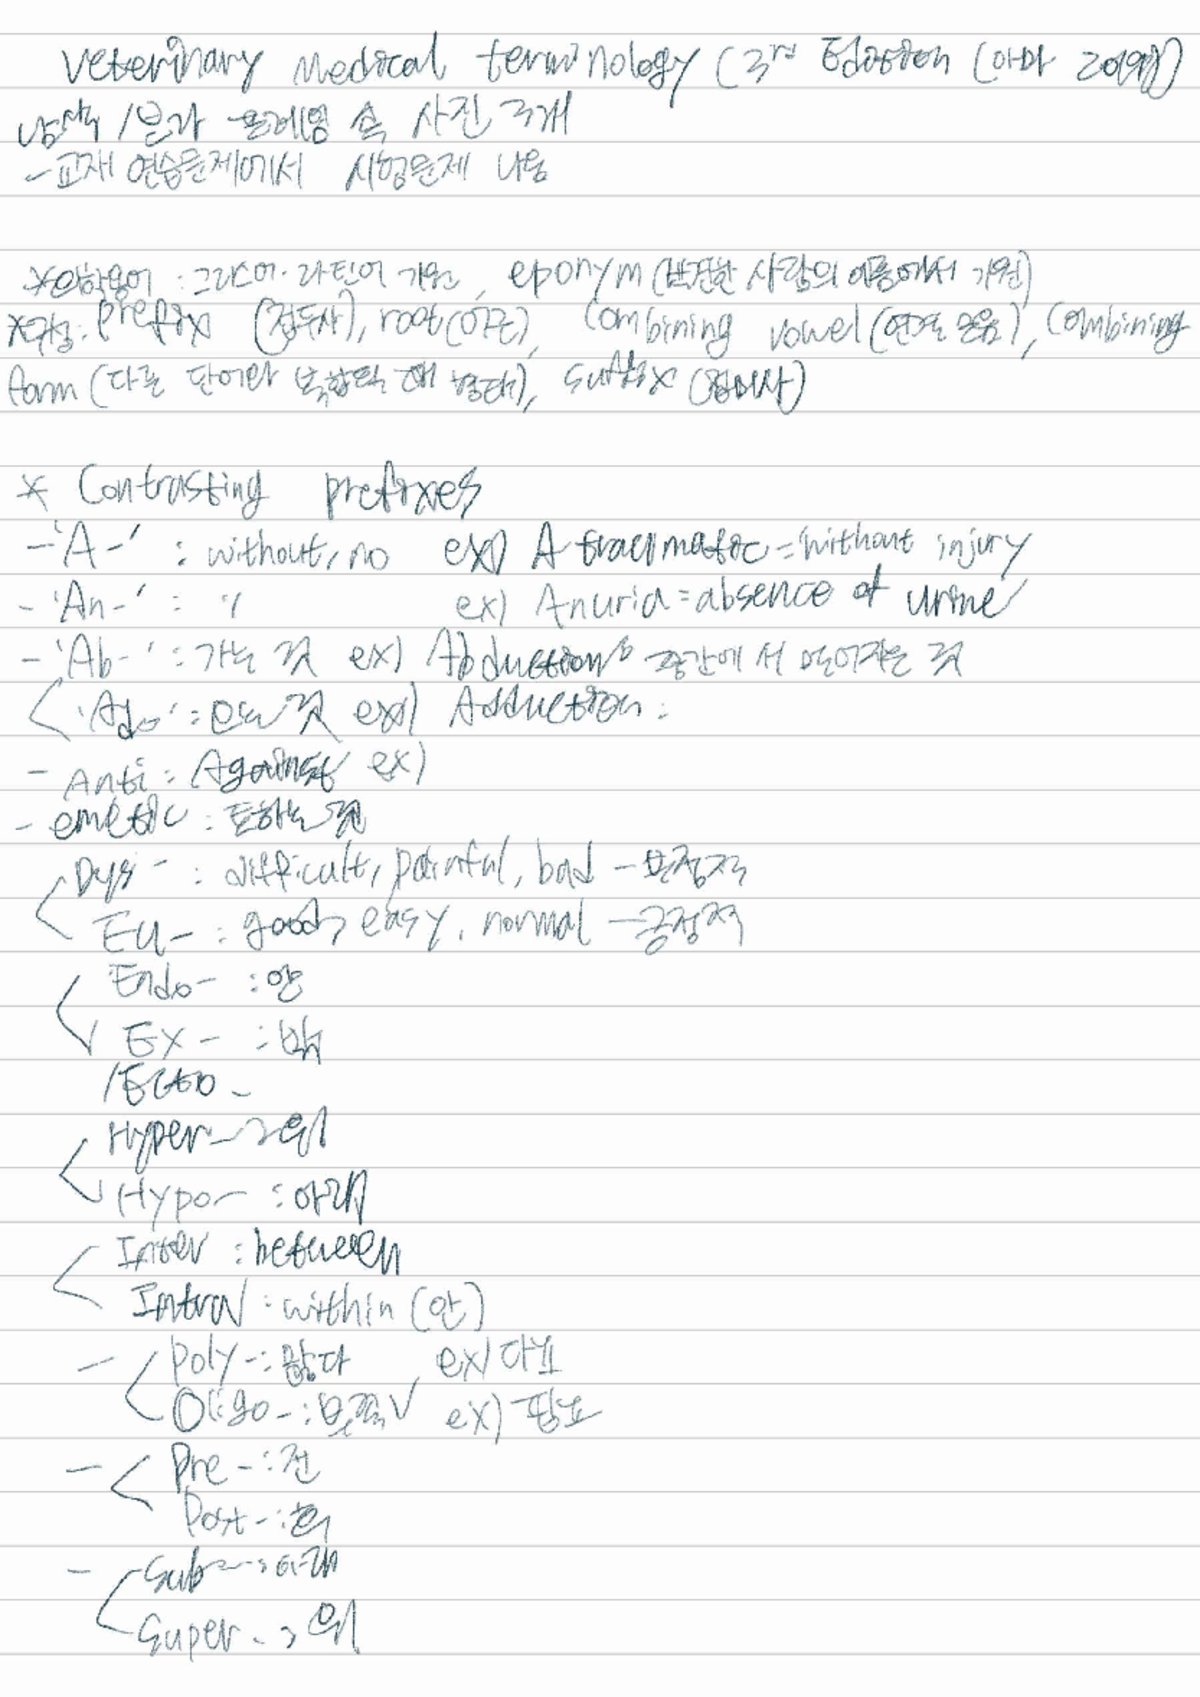 Veterinary Medical terminology (3rd Edition (아마 2019)
/분과 속 사진 3개
- 교재 연습문제에서 시험문제 나옴
*의학용어 : 그리스어·라틴어 기원, eponym (발견한 사람의 이름에서 기원)
*구성: prefix (접두사), root (어근), Combining vowel (연결 모음), Combining
form (다른 단어와 복합 형태), suffix (접미사)
* Contrasting prefixes
- 'A-' : without, no ex) A traumatic = without injury
- 'An-' : 〃 ex) Anuria = absence of urine
- 'Ab-' : 가는 것 ex) Abduction 중간에서 멀어지는 것
'Ad-' : 오는 것 ex) Adduction :
- Anti : Against ex)
- emetic : 토하는 것
Dys- : difficult, painful, bad - 부정적
Eu- : good, easy, normal - 긍정적
Endo- : 안
Ex- : 밖
/Ecto -
Hyper- : 위
Hypo- : 아래
Inter : between
Intra : within (안)
- Poly- : 많다 ex) 다뇨
Oligo- : 부족 ex) 핍뇨
- Pre- : 전
Post- : 후
- Sub- : 아래
Super- : 위